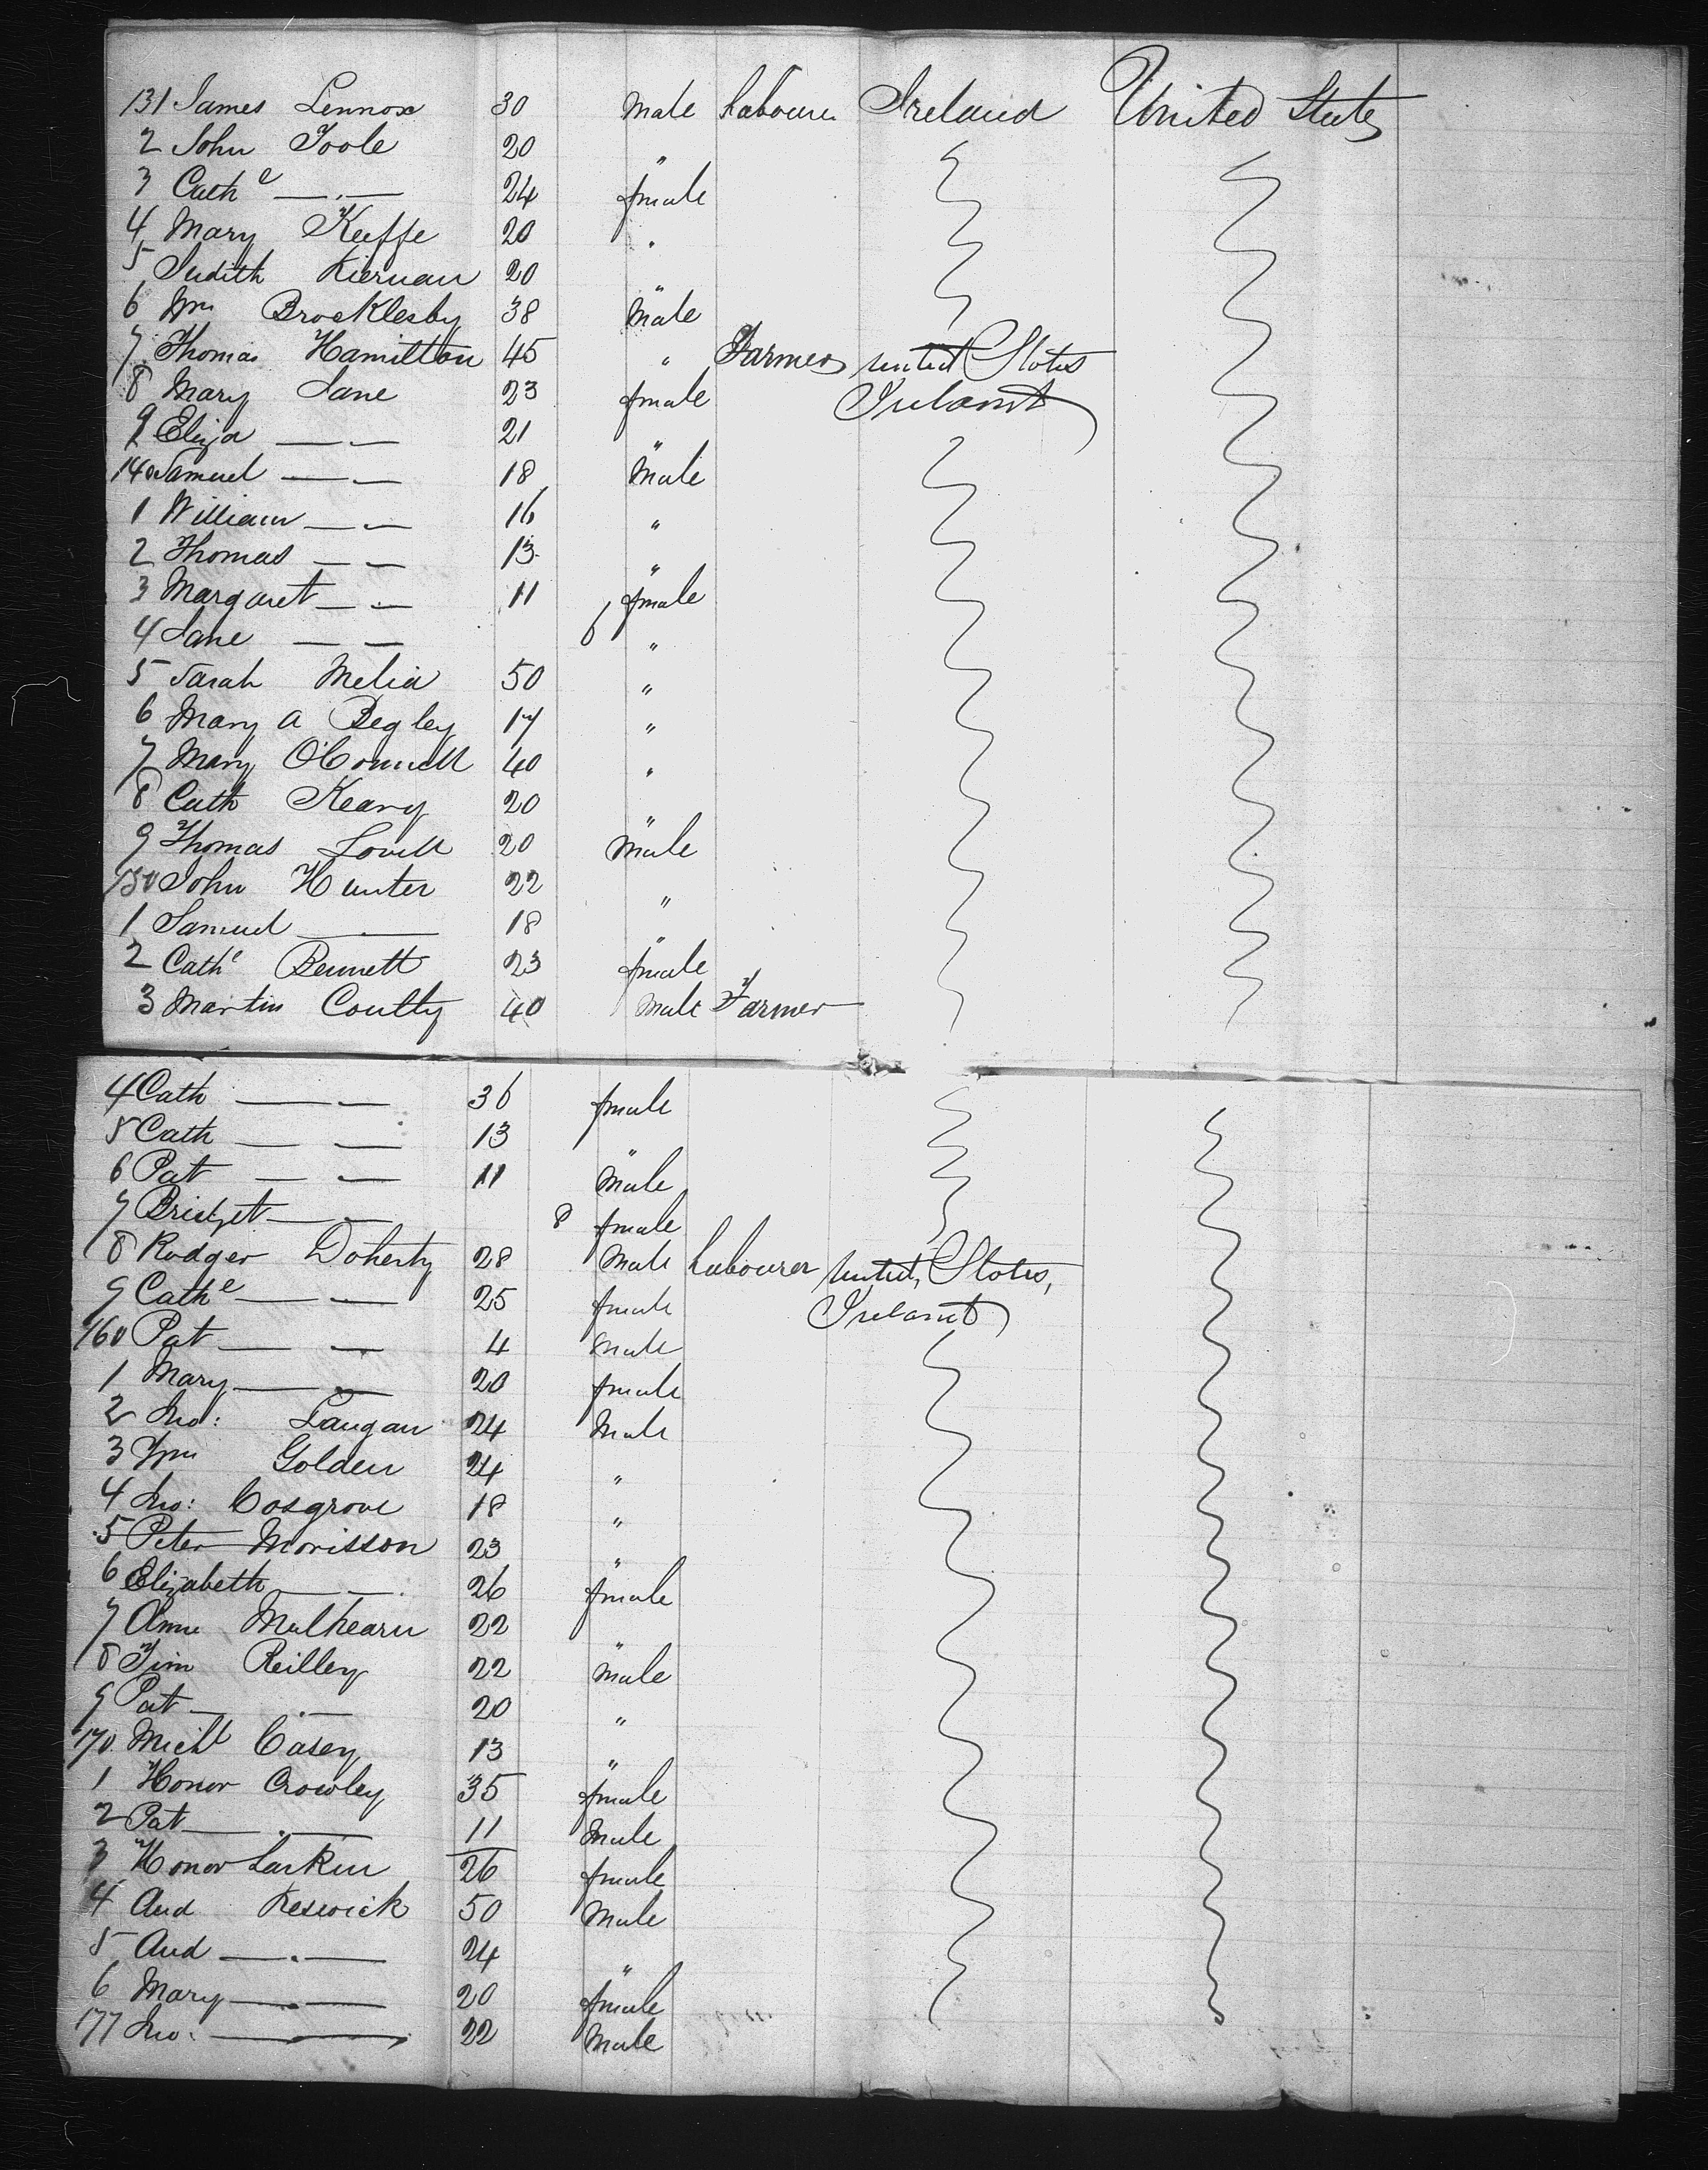 131 James Lennox 30 Male Labourer Ireland United States
2 John Toole 20 "
3 Cathe —.— 24 female
4 Mary Keffe 20 "
5 Judith Kiernan 20 "
6 Wm Brocklesby 38 Male
7 Thomas Hamilton 45 " Farmer United States
8 Mary Jane 23 female Ireland
9 Eliza — — 21 "
140 Samuel — — 18 Male
1 William — — 16 "
2 Thomas — — 13 "
3 Margaret — — 11 female
4 Jane — — 6 "
5 Sarah Melia 50 "
6 Mary A Begley 17 "
7 Mary O'Connell 40 "
8 Cath Keary 20 "
9 Thomas Lovell 20 Male
150 John Hunter 22 "
1 Samuel — 18 "
2 Cathe Bennett 23 female
3 Martin Coultty 40 Male Farmer
4 Cath — — 36 female
5 Cath — — 13 "
6 Pat — — 11 Male
7 Bridget — — 8 female
8 Rodger Doherty 28 Male Labourer United States,
9 Cathe — — 25 female Ireland
160 Pat — — 4 Male
1 Mary — — 20 female
2 Jno: Langan 24 Male
3 Wm Golden 24 "
4 Jno: Cosgrove 18 "
5 Peter Morisson 23 "
6 Elizabeth — — 26 female
7 Ann Mulhearn 22 "
8 Tim Reilley 22 Male
9 Pat — — 20 "
170 Michl Casey 13 "
1 Honor Crowley 35 female
2 Pat —.— 11 Male
3 Honor Larkin 26 female
4 And Keswick 50 Male
5 And —.— 24 "
6 Mary —.— 20 female
177 Jno. — 22 Male